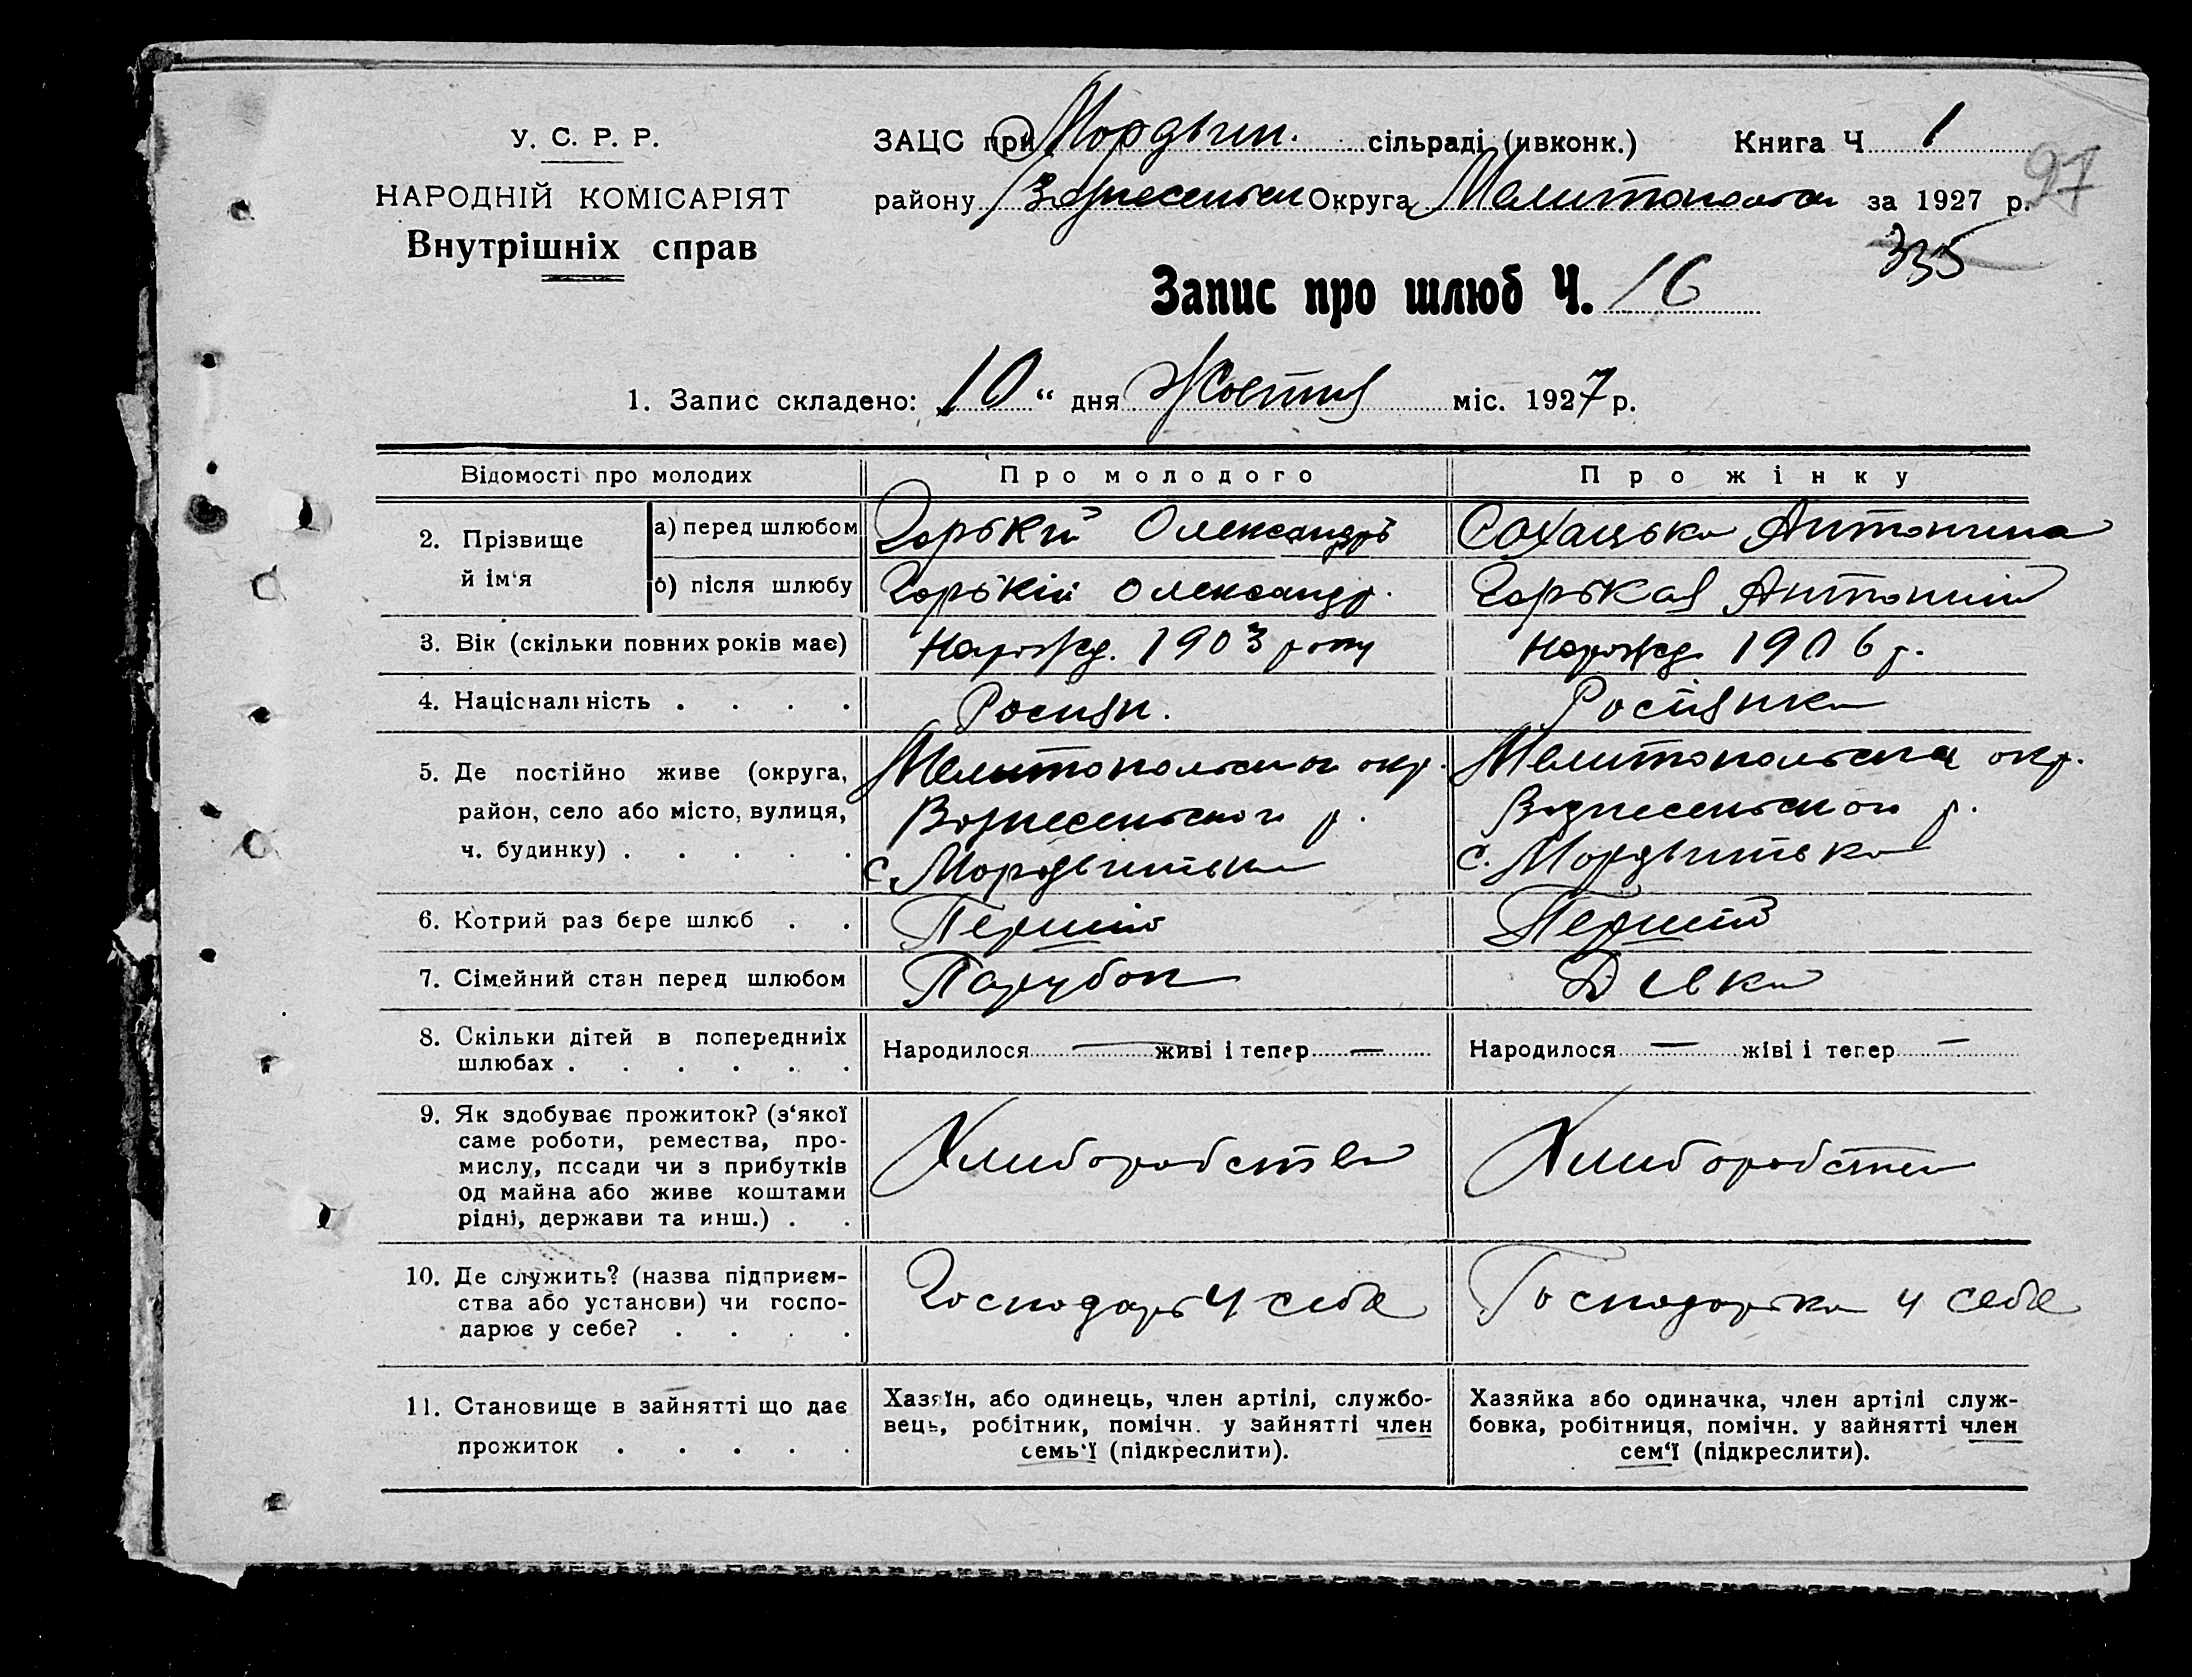 У. С. Р. Р.
НАРОДНІЙ КОМІСАРІЯТ
Внутрішніх справ
ЗАЦС при Мордвин. сільраді (ивконк.) Книга Ч 1
району Вознесенськ Округа Мелитопольськ за 1927 р.
97
335
Запис про шлюб Ч. 16
1. Запис складено: 10 “ дня Жовтня міс. 1927 р.
Відомості про молодих Про молодого Про жінку
2. Прізвище й ім‘я
а) перед шлюбом Горький Олександръ Сохацька Антонина
б) після шлюбу Горькій Олександр. Горькая Антонина
3. Вік (скільки повних років має) Нарожд. 1903 року Нарожд. 1906 р.
4. Національність . . . . Росиян. Росіянка
5. Де постійно живе (округа, Мелитопольськои окр. Мелитопольська окр.
район, село або місто, вулиця, Вознесенського р. Вознесенського р.
ч. будинку) . . . . . с. Мордвинівка с. Мордвинівка
6. Котрий раз бере шлюб . . Перший Перший
7. Сімейний стан перед шлюбом Парубок Дівка
8. Скільки дітей в попередниіх
шлюбах . . . . . . Народилося — живі і тепер — Народилося — жіві і тепер —
9. Як здобуває прожиток? (з‘якої
саме роботи, ремества, про-
мислу, посади чи з прибутків Хлиборобство Хлиборобство
од майна або живе коштами
рідні, держави та инш.) . .
10. Де служить? (назва підприєм-
ства або установи) чи госпо- Господарь у себе Господарька у себе
дарює у себе? . . . .
11. Становище в зайнятті що дає
прожиток . . . . .
Хазяїн, або одинець, член артілі, службо-
вець, робітник, помічн. у зайнятті член
семь‘ї (підкреслити).
Хазяйка або одиначка, член артілі служ-
бовка, робітниця, помічн. у зайнятті член
сем‘ї (підкреслити).